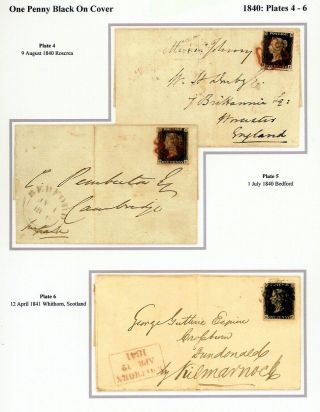 One Penny Black On Cover
1840: Plates 4 - 6
Plate 4
9 August 1840 Roscrea
7 Britannia Sq:
Worcester
England
Plate 5
1 July 1840 Bedford
C. Pemberton Esq
Cambridge
Plate 6
12 April 1841 Whithorn, Scotland
George Guthrie Esquire
Dundonald
by Kilmarnock
WHITHORN
APR 12
1841